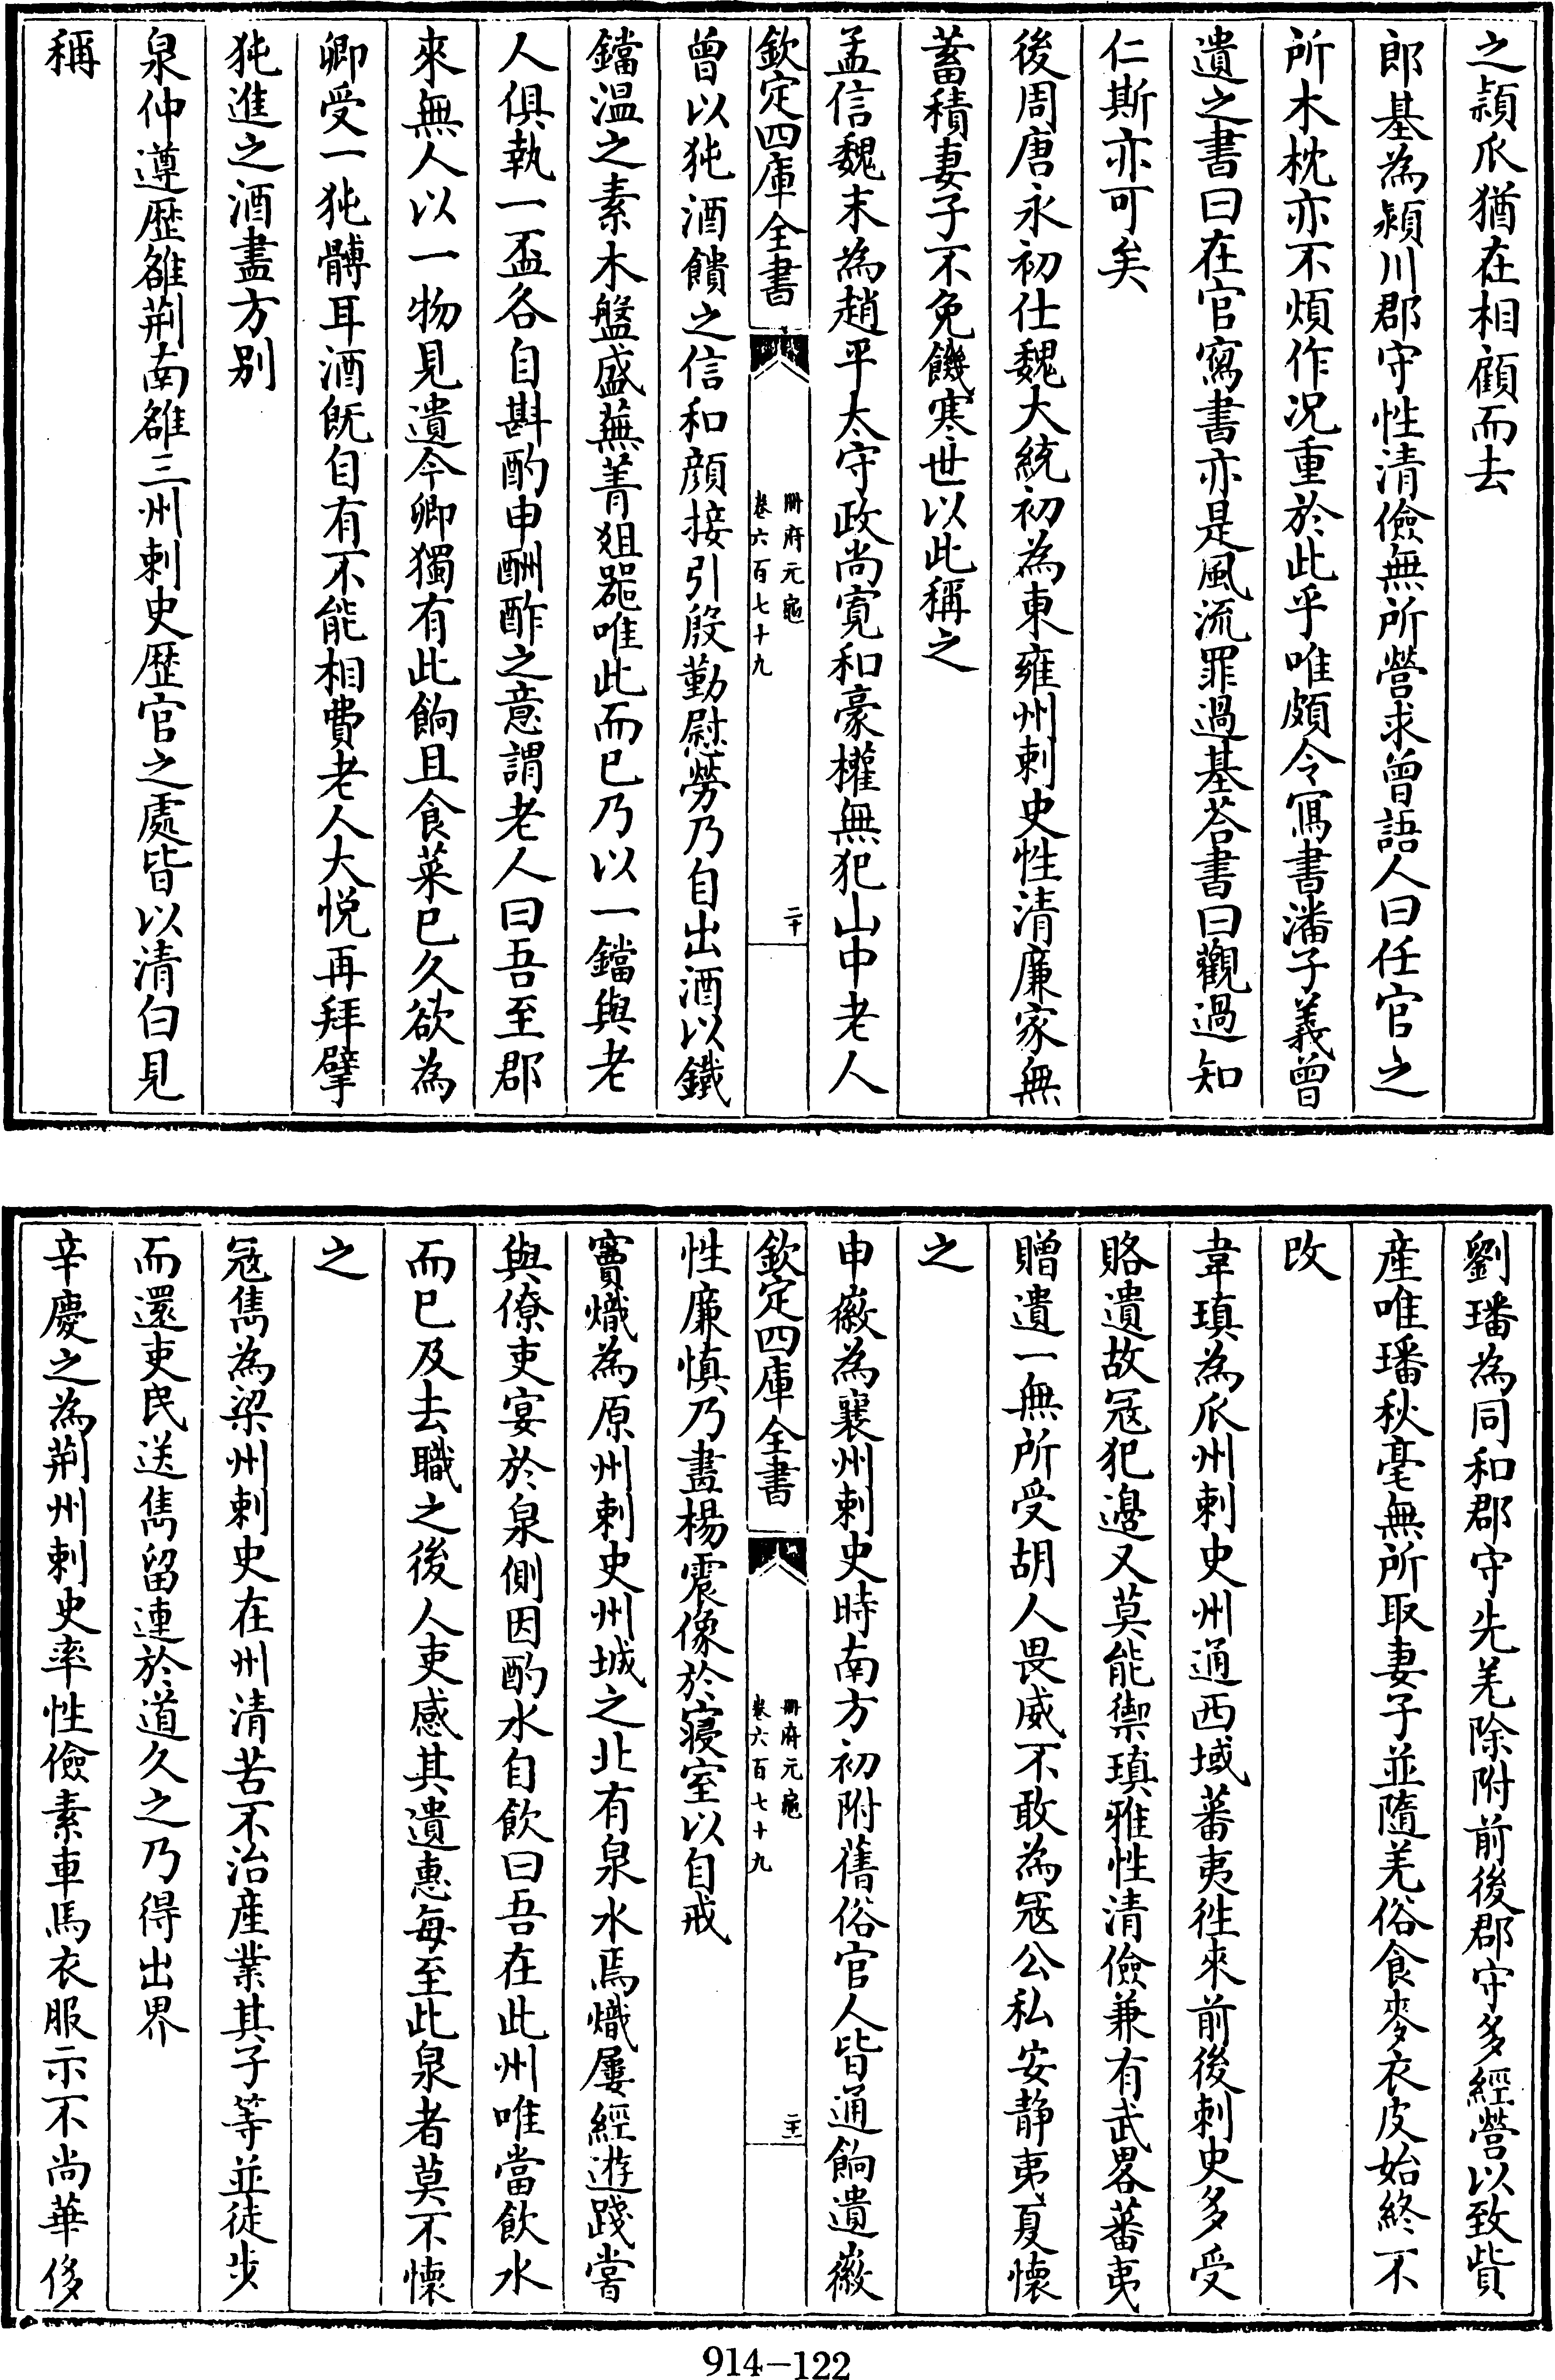 之頴爪猶在相顧而去
郎基為頴川郡守性清儉無所營求曾語人曰任官之
所木枕亦不煩作况重於此乎唯頗令寫書潘子義曾
遺之書曰在官寫書亦是風流罪過基荅書曰觀過知
仁斯亦可矣
後周唐永初仕魏大統初為東雍州刺史性清廉家無
蓄積妻子不免饑寒世以此稱之
孟信魏末為趙平太守政尚寛和豪權無犯山中老人
欽定四庫全書
冊府元龜
卷六百七十九
二十
曾以㹠酒饋之信和顔接引殷勤慰勞乃自出酒以鐵
鐺温之素木盤盛蕪菁爼噐唯此而已乃以一鐺與老
人俱執一盃各自斟酌申酬酢之意謂老人曰吾至郡
來無人以一物見遺今卿獨有此餉且食菜已久欲為
卿受一㹠髆耳酒旣自有不能相費老人大悦再拜擘
㹠進之酒盡方别
泉仲遵歴雒荆南雒三州刺史歴官之處皆以清白見
稱
劉璠為同和郡守先羌除附前後郡守多經營以致貲
産唯璠秋毫無所取妻子並隨羌俗食麥衣皮始終不
改
韋瑱為爪州刺史州通西域蕃夷徃來前後刺史多受
賂遺故冦犯邉又莫能禦瑱雅性清儉兼有武畧蕃夷
贈遺一無所受胡人畏威不敢為冦公私安静夷夏懷
之
申徽為襄州刺史時南方初附舊俗官人皆通餉遺徽
欽定四庫全書
冊府元龜
卷六百七十九
二十一
性廉慎乃畫楊震像於寢室以自戒
竇熾為原州刺史州城之北有泉水焉熾屢經遊踐嘗
與僚吏宴於泉側因酌水自飲曰吾在此州唯當飲水
而已及去職之後人吏感其遺惠每至此泉者莫不懷
之
冦雋為梁州刺史在州清苦不治産業其子等並徒步
而還吏民送雋留連於道久之乃得出界
辛慶之為荆州刺史率性儉素車馬衣服示不尚華侈
914-122